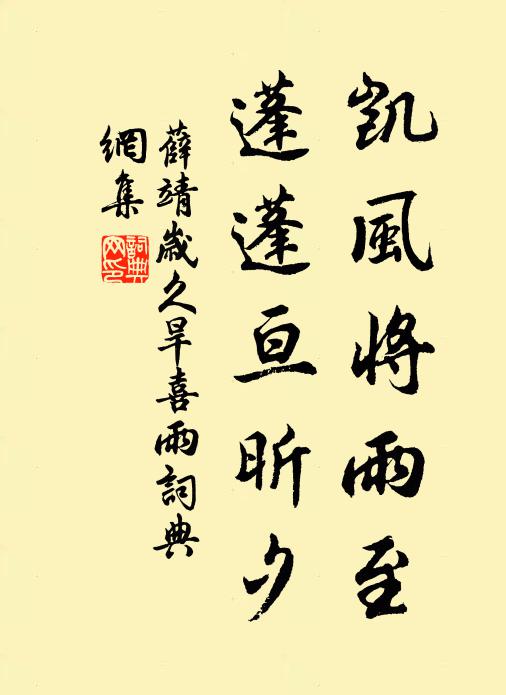 凱風將雨至
蓬蓬亘昕夕
薛靖歲久旱喜雨詞典
網集
詞典
网印